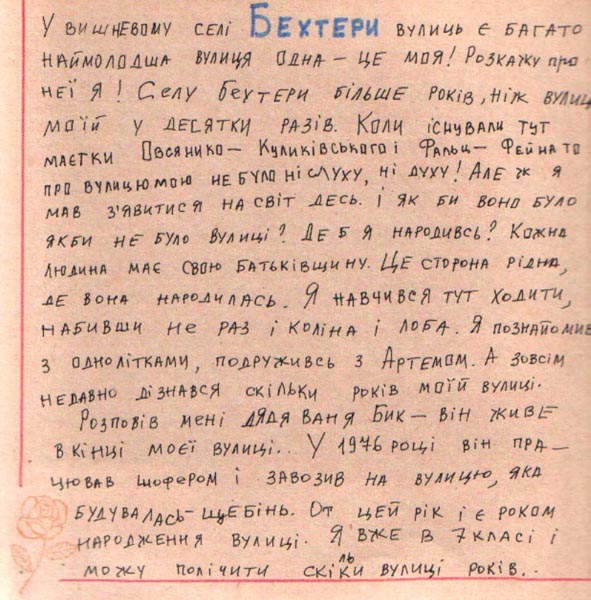 У вишневому селі Бехтери вулиць є багато
наймолодша вулиця одна – це моя! Розкажу про
неї я! Селу Бехтери більше років, ніж вулиц
моїй у десятки разів. Коли існували тут
маєтки Овсянико – Куликівського і Фальц – Фейна то
про вулицю мою не було ні слуху, ні духу! Але ж я
мав з'явитися на світ десь. І як би воно було
якби не було вулиці? Де б я народивсь? Кожна
людина має свою батьківщину. Це сторона рідна,
де вона народилась. Я навчився тут ходити,
набивши не раз і коліна і лоба. Я познайомив
з однолітками, подруживсь з Артемом. А зовсім
недавно дізнався скільки років моїй вулиці.
Розповів мені дядя Ваня Бик – він живе
в кінці моєї вулиці.. У 1976 році він пра –
цював шофером і завозив на вулицю, яка
будувалась – щебінь. От цей рік і є роком
народження вулиці. Я вже в 7 класі і
можу полічити скільки вулиці років..